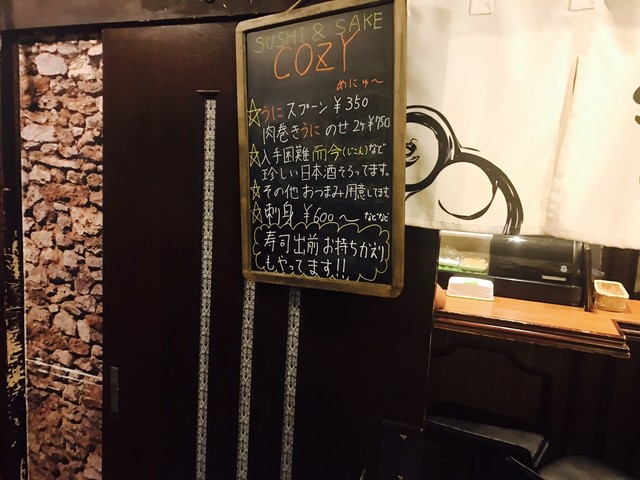 SUSHI & SAKE
COZY
めにゅ〜
☆うにスプーン ¥350
肉巻きうにのせ 2ケ ¥750
☆入手困難 而今(じこん)など
珍しい日本酒そろってます。
☆その他 おつまみ用意してます
☆刺身 ¥600〜 などなど
寿司出前 お持ちかえり
もやってます!!